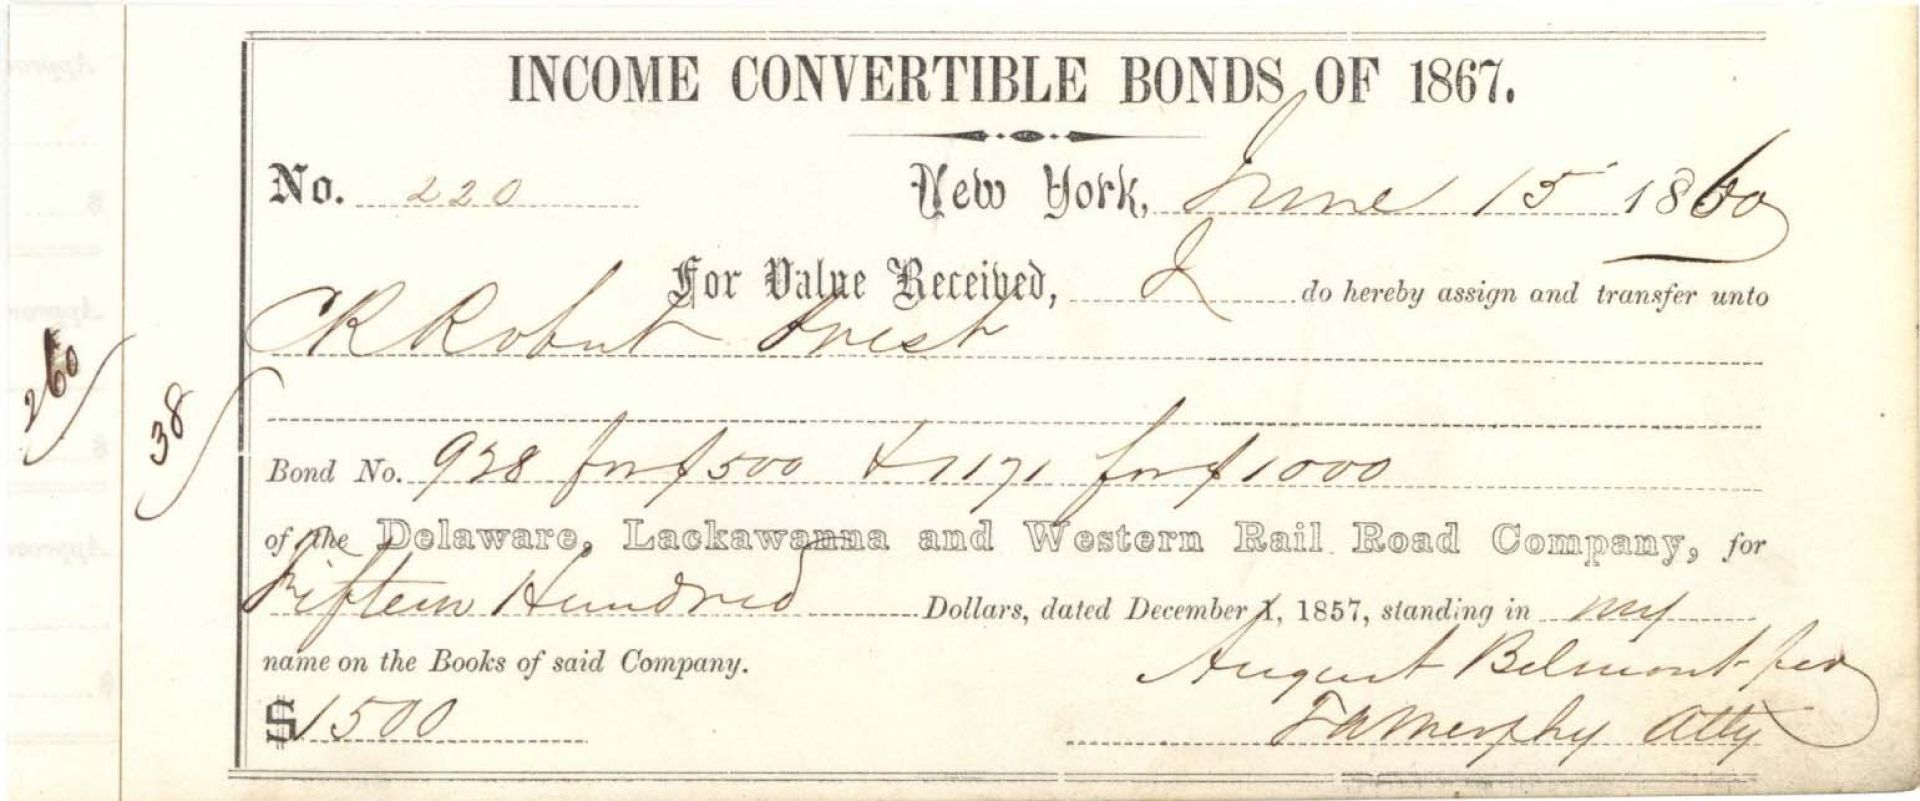 INCOME CONVERTIBLE BONDS OF 1867.
No. 220 New York, June 15 1860
For Value Received, I do hereby assign and transfer unto
CR Robert Prest
260
38
Bond No. 938 for $500 & 1171 for $1000
of the Delaware, Lackawanna and Western Rail Road Company, for
Fifteen Hundred Dollars, dated December 1, 1857, standing in my
name on the Books of said Company.
August Belmont per
$1500 Murphy Atty